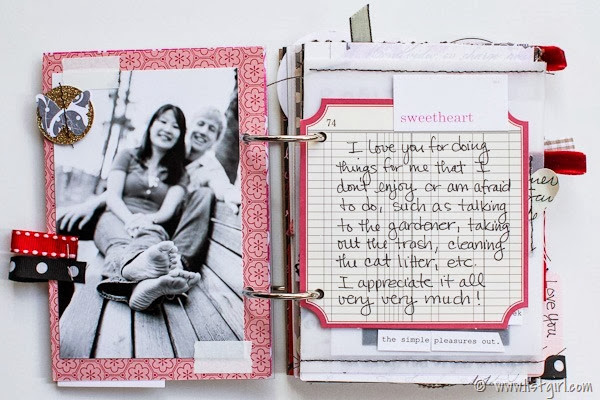 sweetheart
74
I love you for doing
things for me that I
don't enjoy or am afraid
to do, such as talking
to the gardener, taking
out the trash, cleaning
the cat litter, etc.
I appreciate it all
very very much!
the simple pleasures out.
Love you
© www.listgirl.com